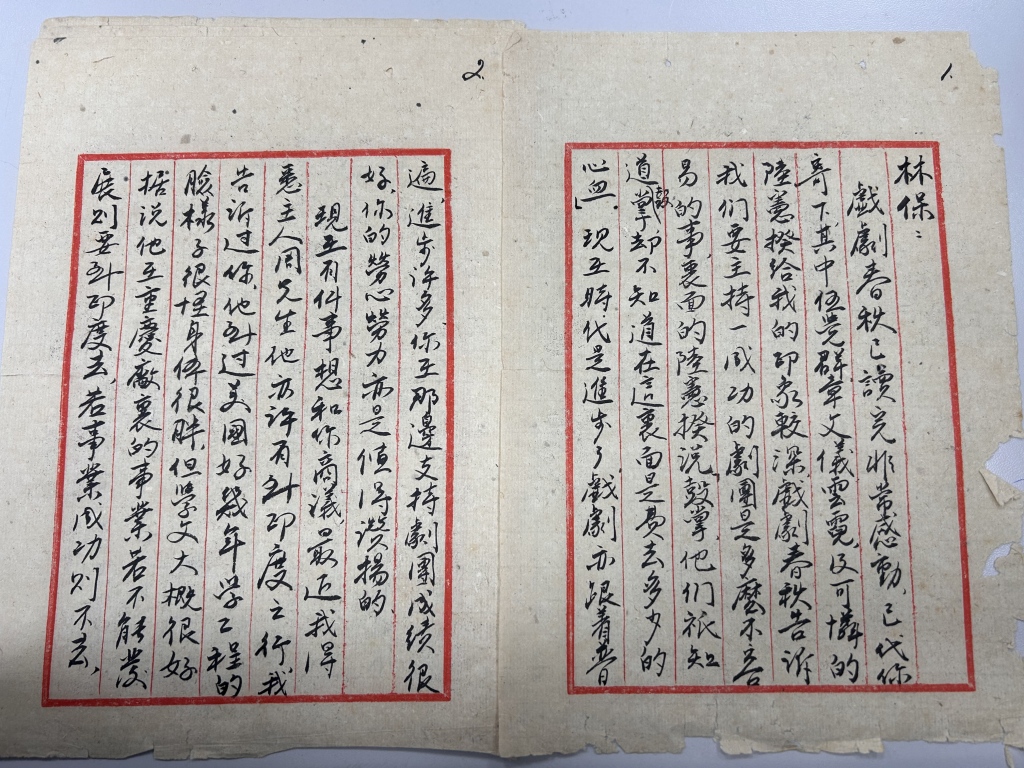 1.
林保：
戲劇春秋已讀完非常感動，已代你
寄下其中伍覺群章文儀雲霓，及可憐的
陸憲揆給我的印象較深戲劇春秋告訴
我们要主持一成功的劇團是多麼不容
易的事，裏面的陸憲揆説「鼓掌，他们祇知
道鼓掌却不知道在這裏面是費去多少的
心血」，現在時代是進步了，戲劇亦跟着普
2.
遍，進步許多，你在那邊支持劇團成績很
好，你的勞心勞力亦是值得讚揚的
現在有件事想和你商議，最近我得
悉主人周先生他亦許有到印度之行，我
告訴过你，他到过美國好幾年学工程的
臉樣子很怪身体很胖，但學文大概很好
据说他在重慶敵裏的事業若不能發
展则要到印度去，若事業成功则不去，